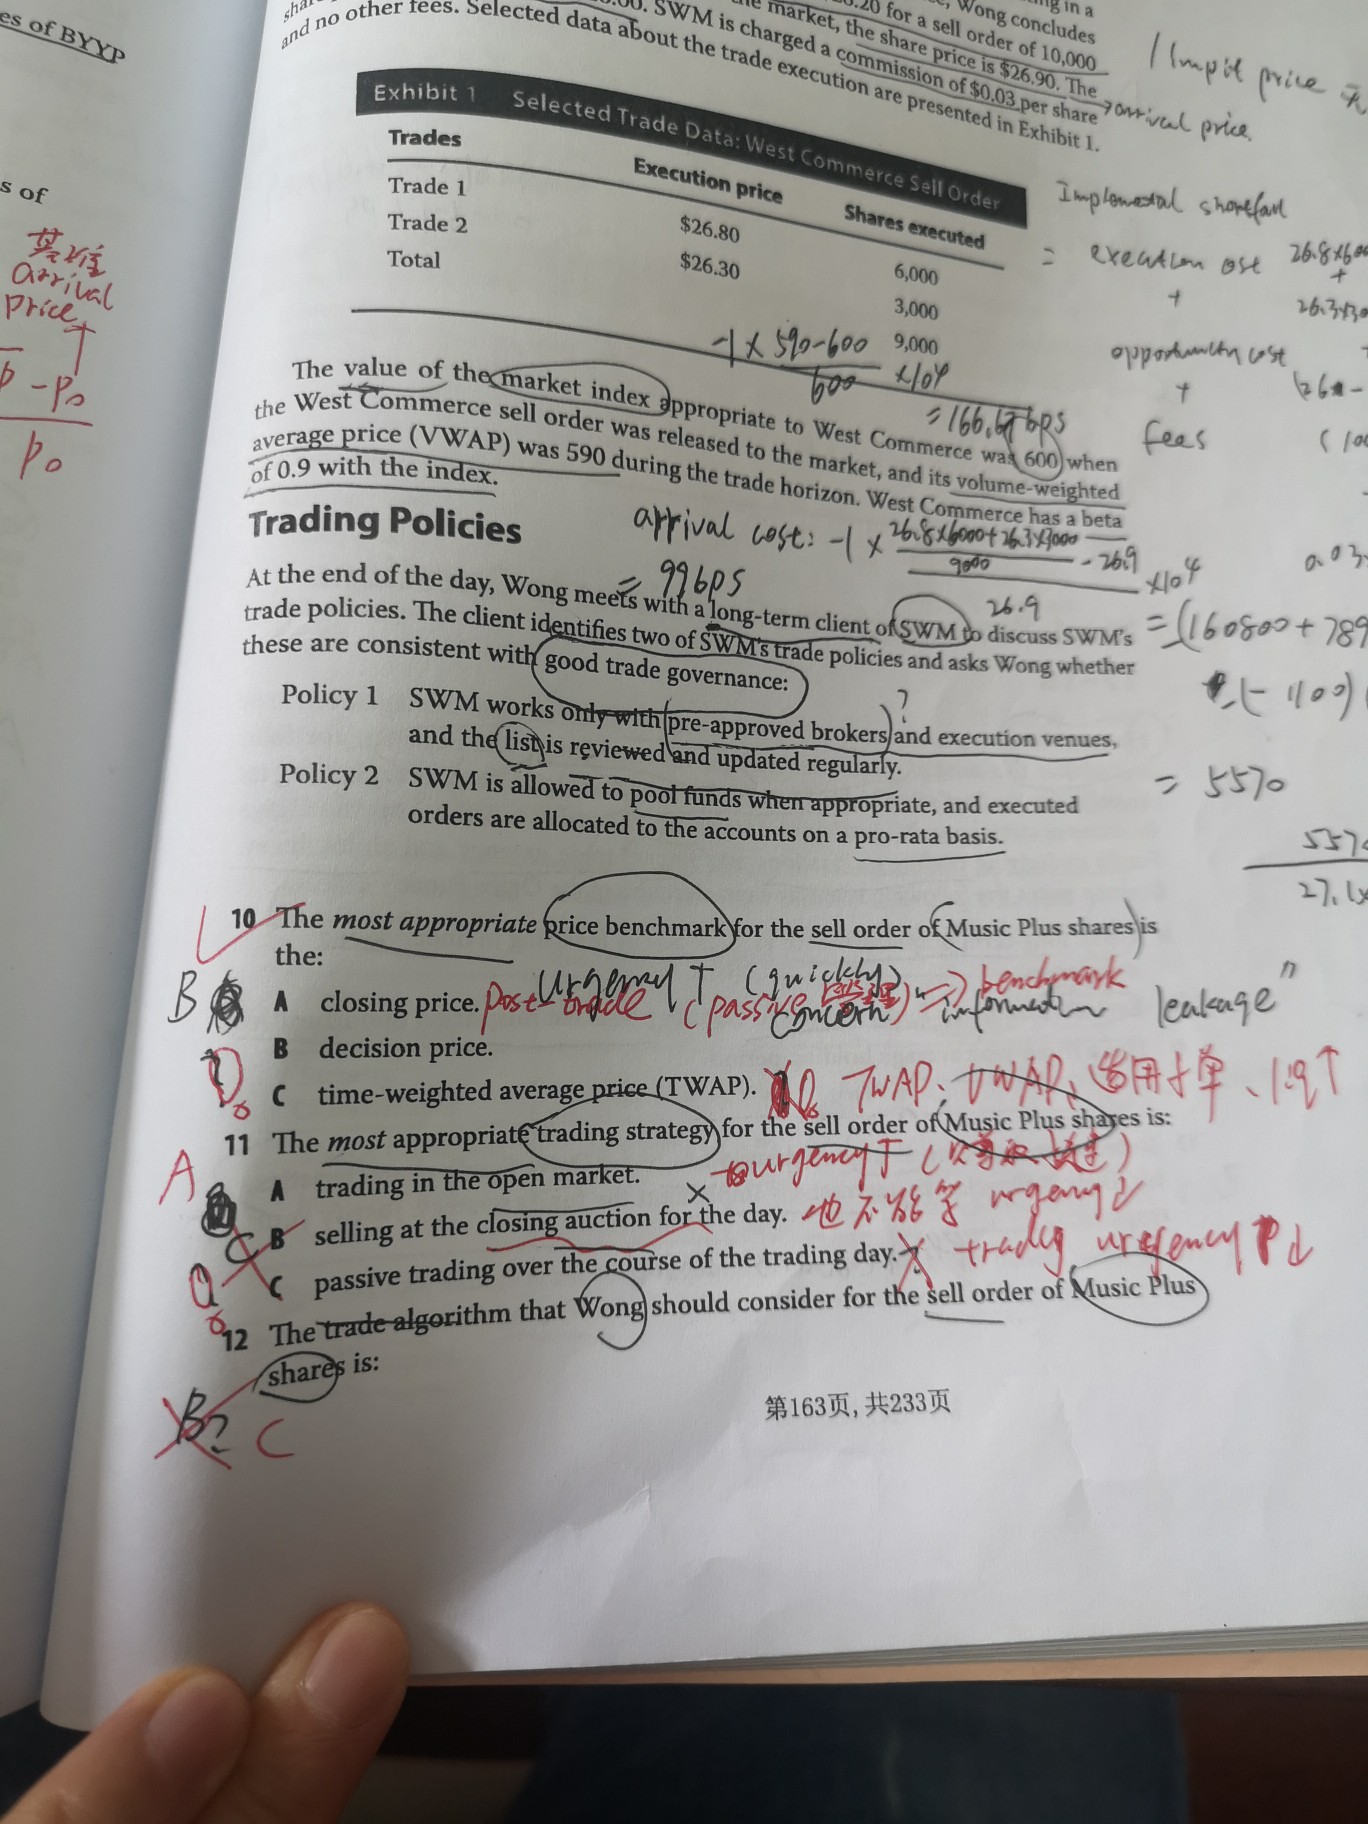 es of BYYP
s of
基准
arrival
price
P - P0
P0
ng in a
Wong concludes
.20 for a sell order of 10,000
market, the share price is $26.90. The
SWM is charged a commission of $0.03 per share
and no other fees. Selected data about the trade execution are presented in Exhibit 1.
price
arrival price.
Exhibit 1 Selected Trade Data: West Commerce Sell Order
Trades Execution price Shares executed
Trade 1 $26.80 6,000
Trade 2 $26.30 3,000
Total 9,000
= execution cost
+
opportunity cost
+
fees
26.8×600
+
26.3×30
-1 × 590-600
600
×10⁴
= 166.67bps
The value of the market index appropriate to West Commerce was 600 when
the West Commerce sell order was released to the market, and its volume-weighted
average price (VWAP) was 590 during the trade horizon. West Commerce has a beta
of 0.9 with the index.
Trading Policies
arrival cost: -1 × 26.8×6000+26.3×3000
9000
- 26.9
26.9
×10⁴
= 99bps
0.03
At the end of the day, Wong meets with a long-term client of SWM to discuss SWM's
trade policies. The client identifies two of SWM's trade policies and asks Wong whether
these are consistent with good trade governance:
= (160800 + 789
(- 1100)
= 5570
557
27.1×
?
Policy 1 SWM works only with pre-approved brokers and execution venues,
and the list is reviewed and updated regularly.
Policy 2 SWM is allowed to pool funds when appropriate, and executed
orders are allocated to the accounts on a pro-rata basis.
10 The most appropriate price benchmark for the sell order of Music Plus shares is
the:
urgency ↑ (quickly)
B
A closing price. post-trade (passive ⇒ benchmark
concern information leakage"
B decision price.
C time-weighted average price (TWAP). TWAP、VWAP、适用大单、liq↑
11 The most appropriate trading strategy for the sell order of Music Plus shares is:
A
A trading in the open market. urgency↑
C
B selling at the closing auction for the day. 也不能等 urgency↓
C passive trading over the course of the trading day. × trading urgency ↓
12 The trade algorithm that Wong should consider for the sell order of Music Plus
shares is:
B? C
第163页, 共233页